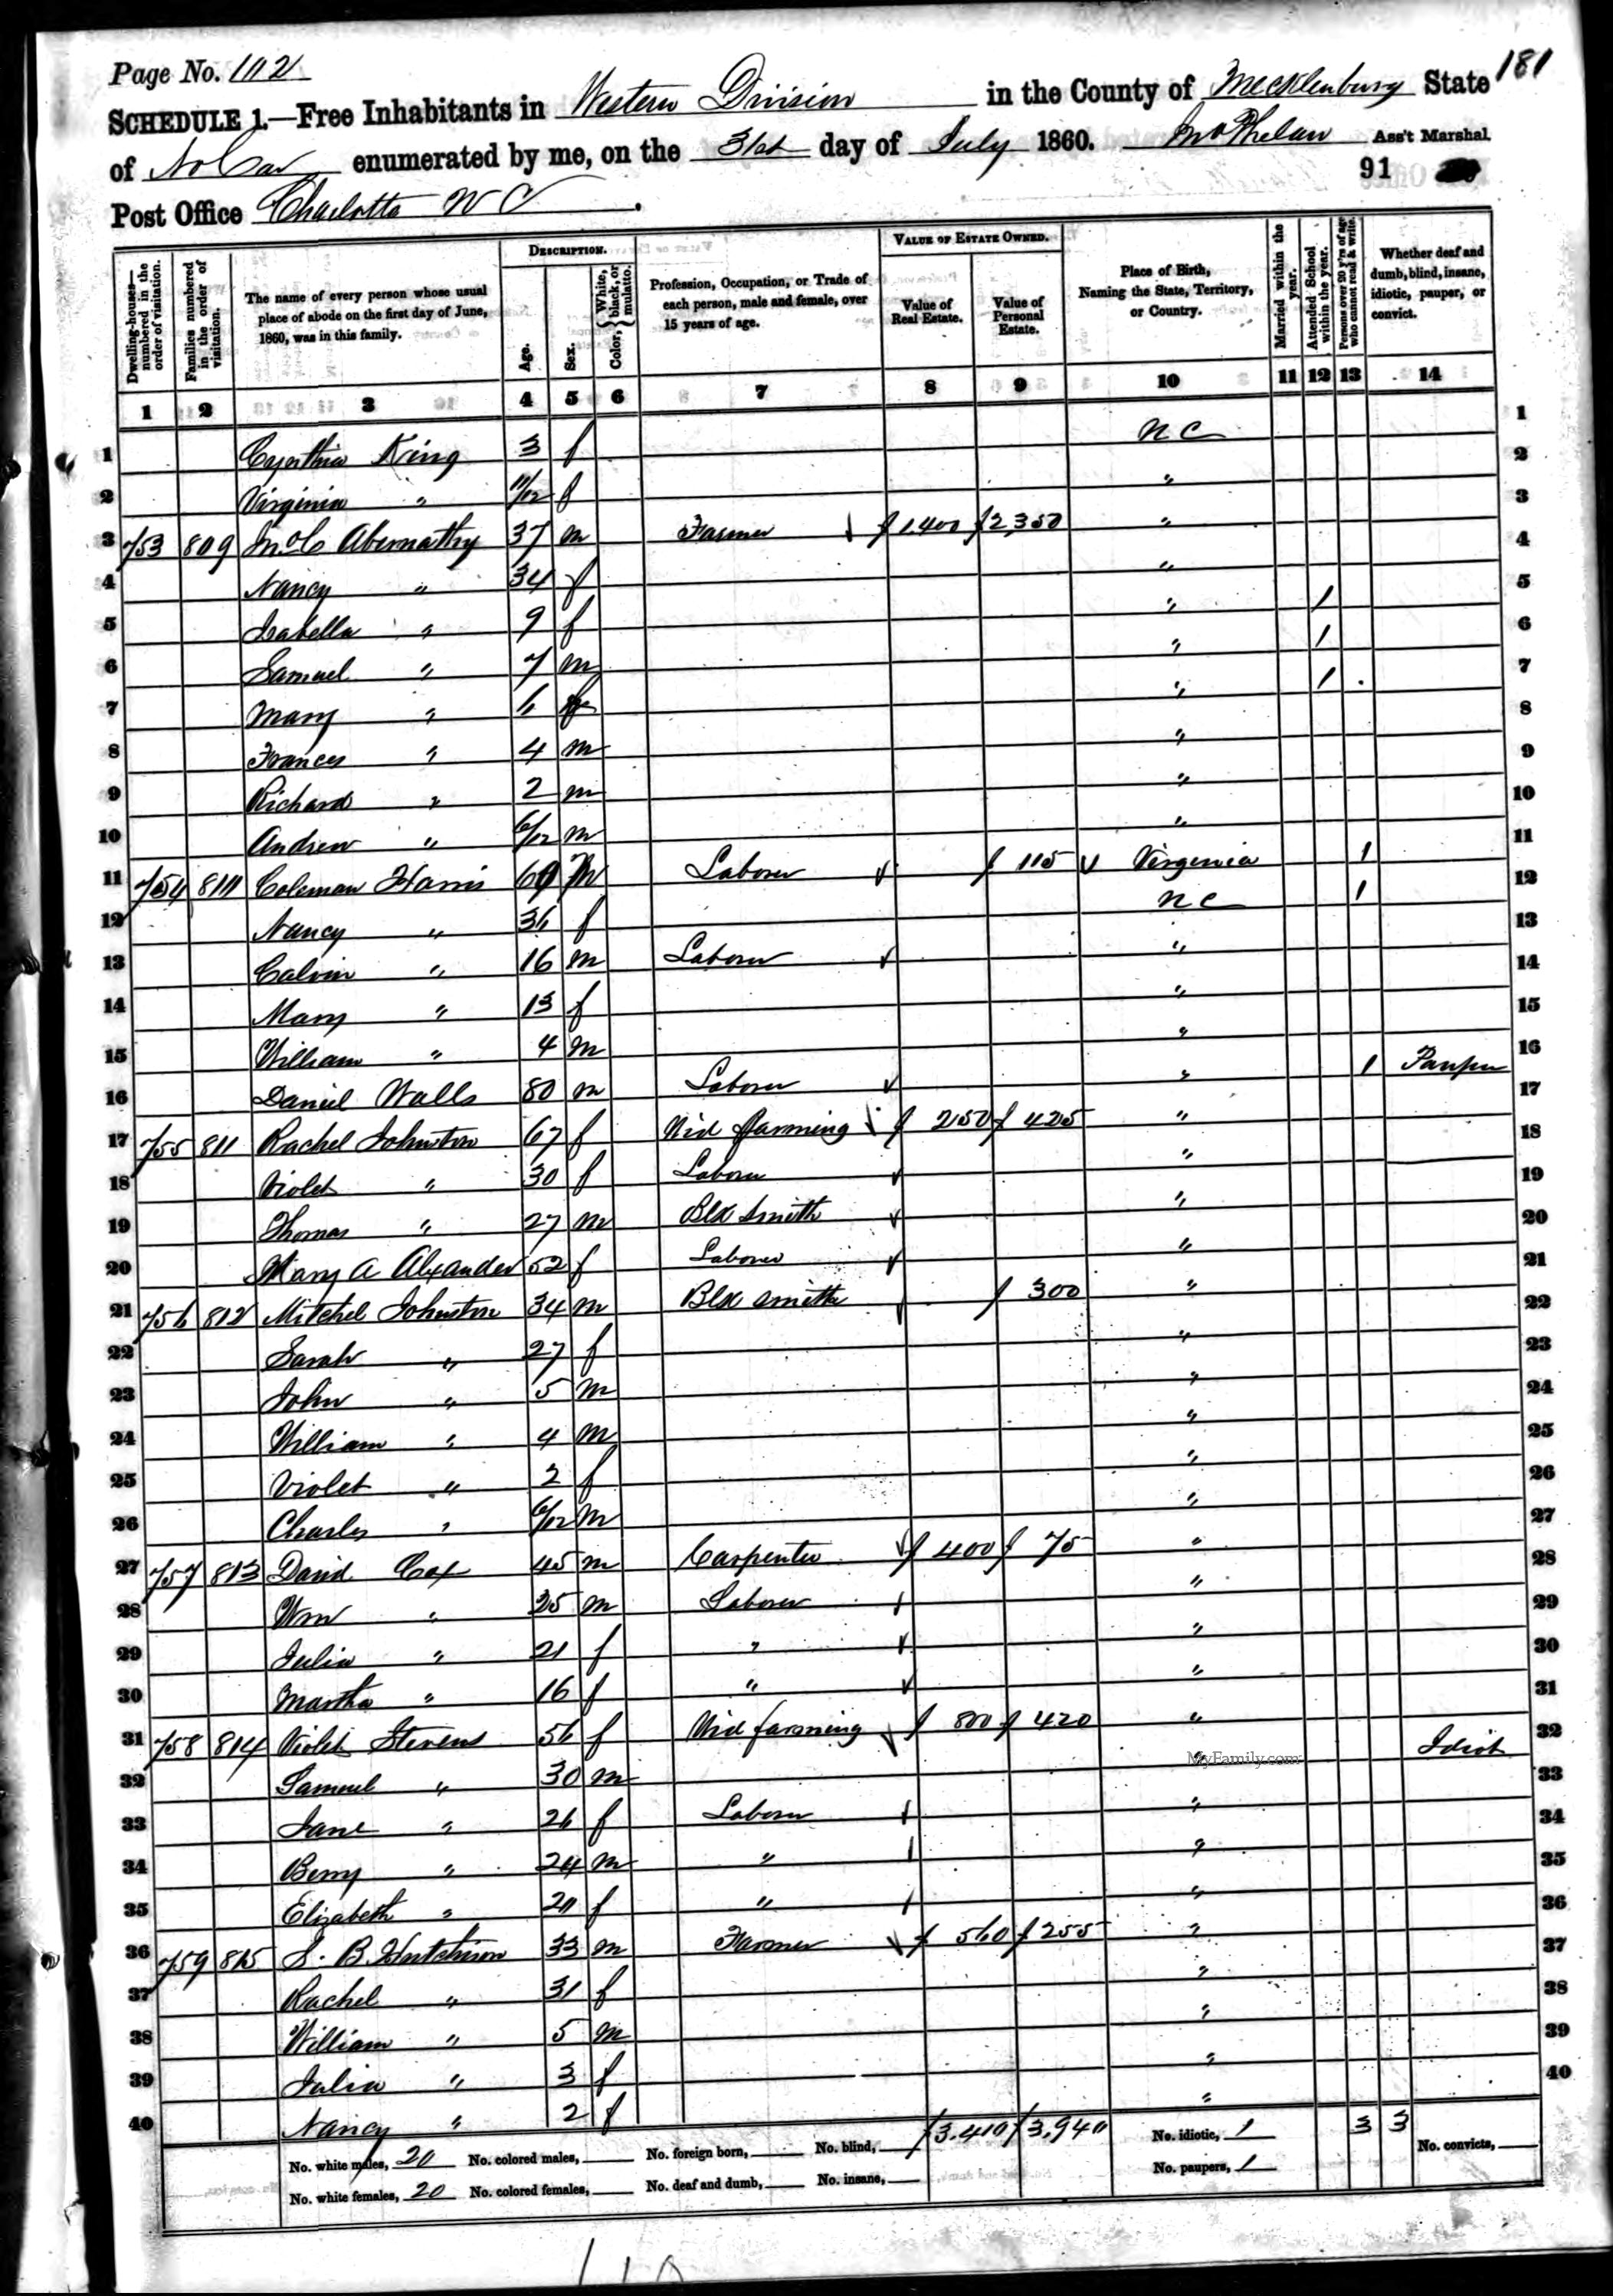 Page No. 102
181
SCHEDULE 1.—Free Inhabitants in Western Division in the County of Mecklenburg State
of No Car enumerated by me, on the 31st day of July 1860. Jno Phelan Ass't Marshal.
91
Post Office Charlotte N C.
Dwelling-houses—numbered in the order of visitation.
Families numbered in the order of visitation.
The name of every person whose usual place of abode on the first day of June, 1860, was in this family.
DESCRIPTION.
Age.
Sex.
Color, { White, black, or mulatto.
Profession, Occupation, or Trade of each person, male and female, over 15 years of age.
VALUE OF ESTATE OWNED.
Value of Real Estate.
Value of Personal Estate.
Place of Birth, Naming the State, Territory, or Country.
Married within the year.
Attended School within the year.
Persons over 20 y'rs of age who cannot read & write.
Whether deaf and dumb, blind, insane, idiotic, pauper, or convict.
1 2 3 4 5 6 7 8 9 10 11 12 13 14
1 Cynthia King 3 f N C 1
2 Virginia " 11/12 f " 2
3 753 809 Jno C Abernathy 37 m Farmer $ 1.400 $ 2,350 " 3
4 Nancy " 34 f " 4
5 Isabella " 9 f " 1 5
6 Samuel " 7 m " 1 6
7 Mary " 6 f " 1 7
8 Frances " 4 m " 8
9 Richard " 2 m " 9
10 Andrew " 6/12 m " 10
11 754 810 Coleman Harris 60 m Laborer $ 115 Virginia 1 11
12 Nancy " 36 f N C 1 12
13 Calvin " 16 m Laborer " 13
14 Mary " 13 f " 14
15 William " 4 m " 15
16 Daniel Walls 80 m Laborer " 1 Pauper 16
17 755 811 Rachel Johnston 67 f Wid farming $ 250 $ 425 " 17
18 Violet " 30 f Laborer " 18
19 Thomas " 27 m Blk Smith " 19
20 Mary A Alexander 52 f Laborer " 20
21 756 812 Mitchel Johnston 34 m Blk smith $ 300 " 21
22 Sarah " 27 f " 22
23 John " 5 m " 23
24 William " 4 m " 24
25 Violet " 2 f " 25
26 Charles " 6/12 m " 26
27 757 813 David Cox 45 m Carpenter $ 400 $ 75 " 27
28 Wm " 25 m Laborer " 28
29 Julia " 21 f " " 29
30 Martha " 16 f " " 30
31 758 814 Violet Stevens 56 f Wid farming $ 800 $ 420 " 31
32 Samuel " 30 m " Idiot 32
MyFamily.com
33 Jane " 26 f Laborer " 33
34 Berry " 24 m " " 34
35 Elizabeth " 20 f " " 35
36 759 815 S. B. Hutchison 33 m Farmer $ 560 $ 255 " 36
37 Rachel " 31 f " 37
38 William " 5 m " 38
39 Julia " 3 f " 39
40 Nancy " 2 f " 40
No. white males, 20 No. colored males, No. foreign born, No. blind, $3.410 $3,940 No. idiotic, 1 3 3 No. convicts,
No. white females, 20 No. colored females, No. deaf and dumb, No. insane, No. paupers, 1